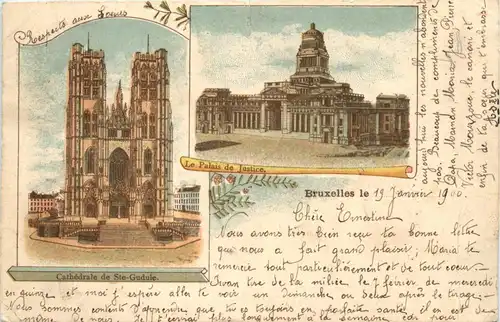 Respects aux Sœurs
Le Palais de Justice.
Cathédrale de Ste-Gudule.
Bruxelles le 19 Janvier 1900.
Chère Ernestine
Nous avons très bien reçu ta bonne lettre
qui nous a fait grand plaisir, Maria te
remercie tout particulièrement et de tout cœur.
Jean tire de la milice le 7 février, de mercredi
en quinze et moi j'espère aller te voir un Dimanche ou deux après le tirage.
Nous sommes contents d'apprendre que tu es toujours en parfaite santé, il en est de
même de nous. Je t'écrirai plus longuement à la semaine car nous
aujourd'hui les nouvelles n'abondent
pas. Beaucoup de compliments de
Papa, Maman Maria Jean Pierre
Victor et
enfin de toi qui t'embrasse